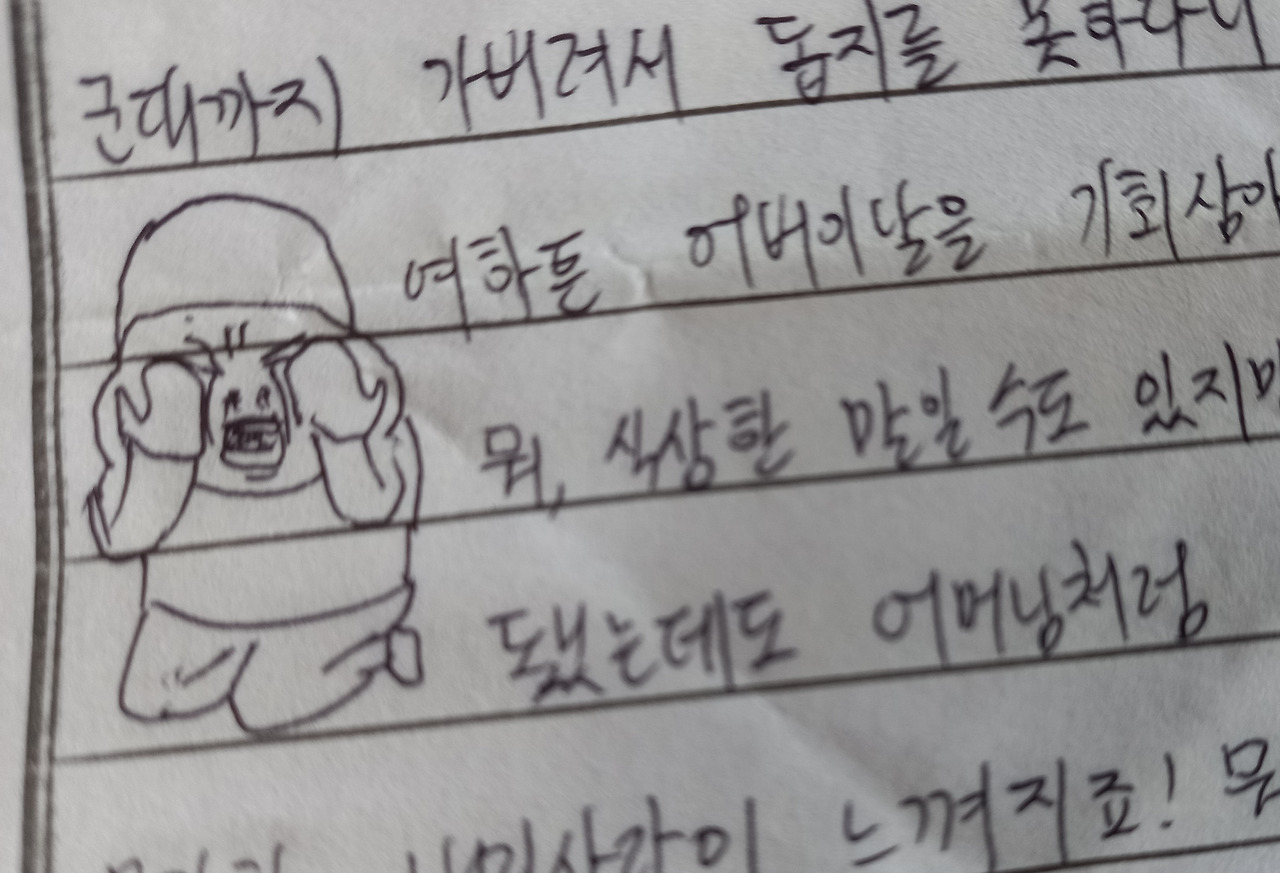 군대까지 가버려서 돕지를 못하다니
여하튼 어버이날을 기회삼아
뭐, 식상한 말일 수도 있지마
됐는데도 어머님처럼
느껴지죠! 무